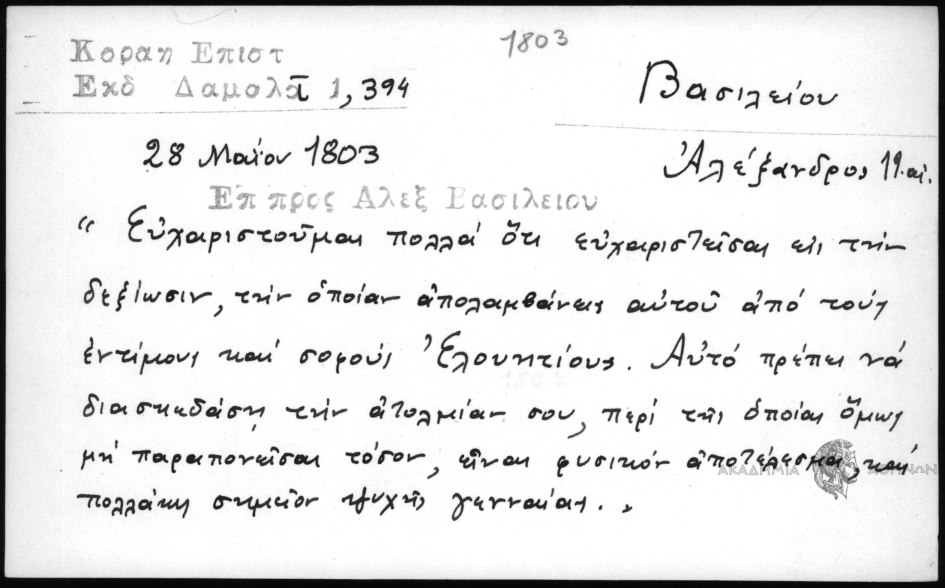 1803
Κοραη Επιστ
Εκδ Δαμαλᾶ 1, 394
Βασιλείου
Ἀλέξανδρος 19. αἰ.
28 Μαΐου 1803
Επ προς Αλεξ Βασιλειου
“ Εὐχαριστοῦμαι πολλά ὅτι εὐχαριστεῖσαι εἰς τήν
δεξίωσιν, τήν ὁποίαν ἀπολαμβάνεις αὐτοῦ ἀπό τούς
ἐντίμους καί σοφούς Ἐλουητίους. Αὐτό πρέπει νά
διασκεδάσῃ τήν ἀτολμίαν σου, περί τῆς ὁποίας ὅμως
μή παραπονεῖσαι τόσον, εἶναι φυσικόν ἀποτέλεσμα, καί
πολλάκις σημεῖον ψυχῆς γενναίας. „
ΑΚΑΔΗΜΙΑ ΑΘΗΝΩΝ